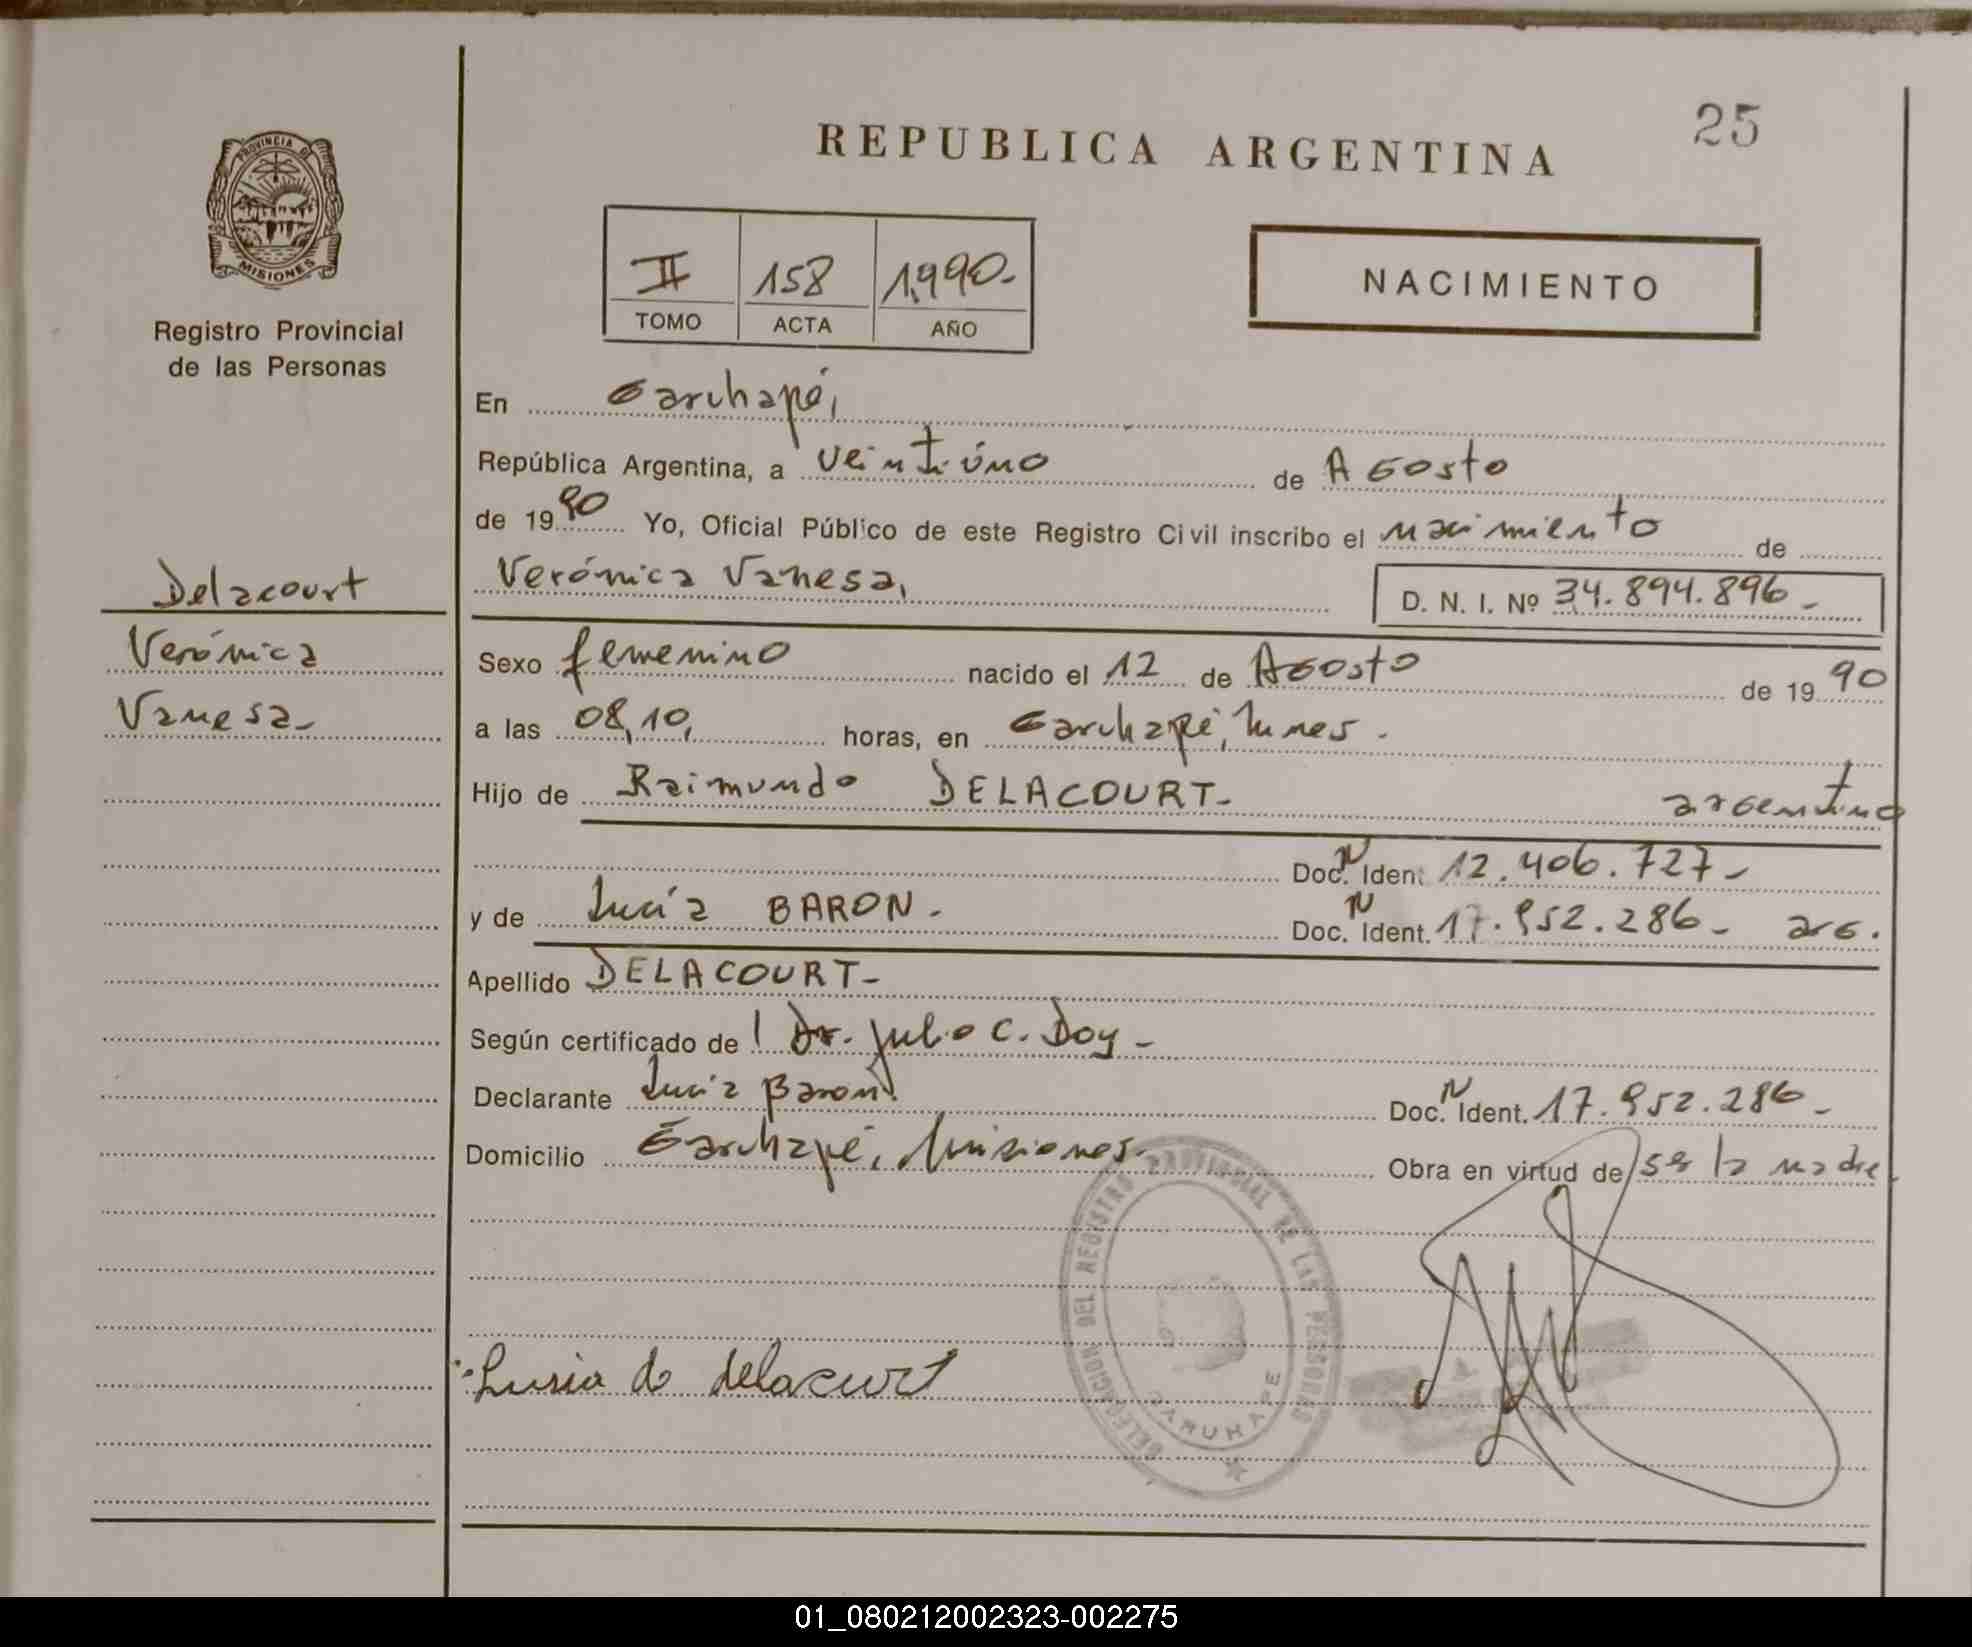 25
REPUBLICA ARGENTINA
PROVINCIA DE
MISIONES
Registro Provincial
de las Personas
II 158 1.990-
TOMO ACTA AÑO
NACIMIENTO
En Garuhapé,
República Argentina, a veintiúno de Agosto
de 1990 Yo, Oficial Público de este Registro Civil inscribo el nacimiento de
Verónica Vanesa,
D. N. I. Nº 34.894.896-
Delacourt
Verónica
Vanesa-
Sexo femenino nacido el 12 de Agosto de 1990
a las 08,10, horas, en Garuhapé, Mnes.
Hijo de Raimundo DELACOURT- argentino
Doc. N Ident 12.406.727-
y de Lucía BARON. Doc. N Ident. 17.952.286- arg.
Apellido DELACOURT-
Según certificado de Dr. Julio C. Doy-
Declarante Lucía Baron. Doc. N Ident. 17.952.286-
Domicilio Garuhapé, Misiones- Obra en virtud de ser la madre.
DELEGACION DEL REGISTRO PROVINCIAL DE LAS PERSONAS
GARUHAPE
Lusia de delacurt
01_080212002323-002275